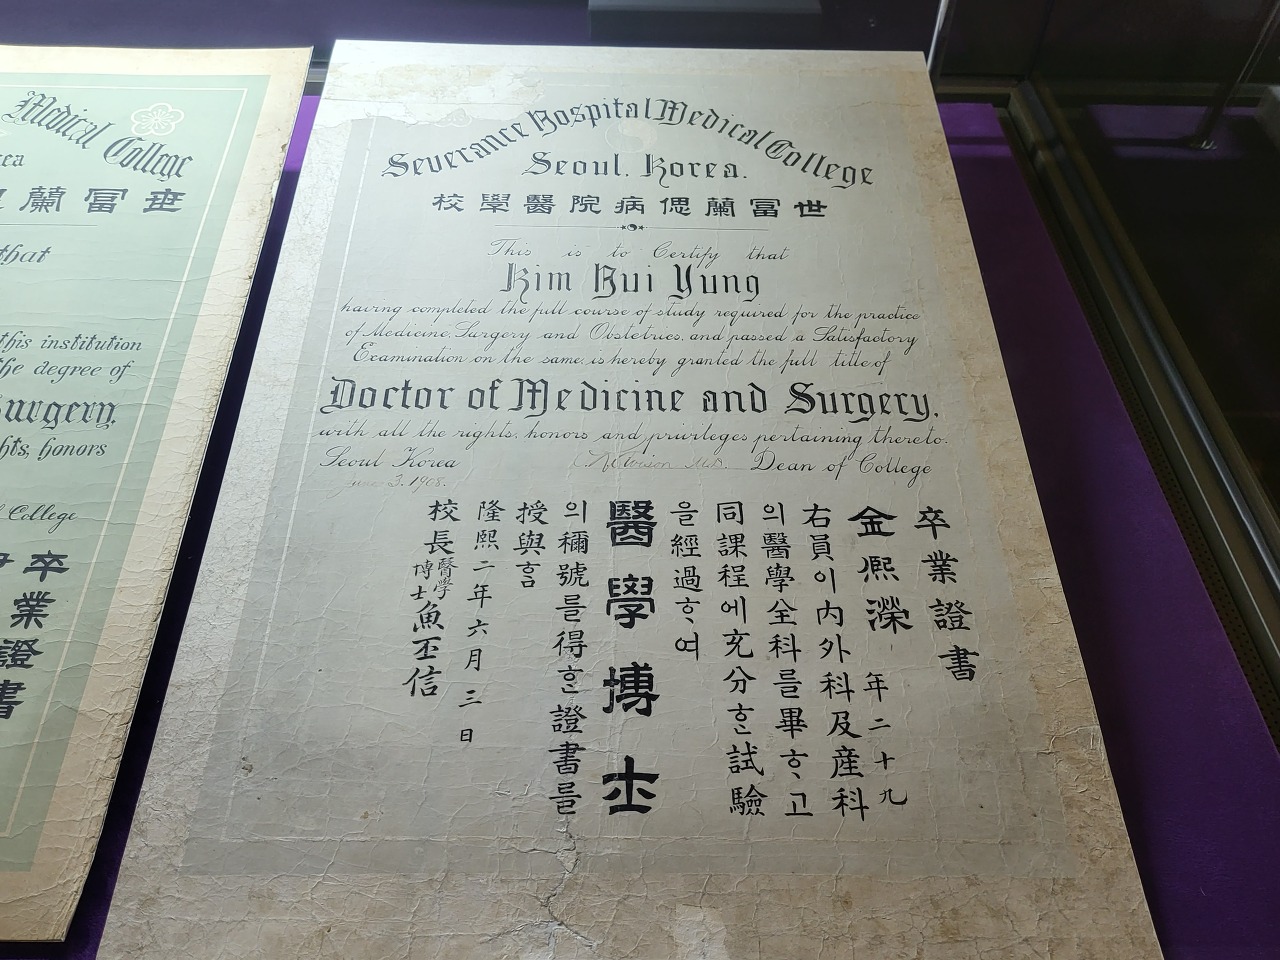 Medical College
rea
蘭冨世
that
this institution
the degree of
urgery,
hts, honors
College
卒業證書
Severance Hospital Medical College
Seoul. Korea.
校學醫院病偲蘭冨世
This is to Certify that
Kim Hui Yung
having completed the full course of study required for the practice
of Medicine, Surgery and Obstetrics, and passed a Satisfactory
Examination on the same, is hereby granted the full title of
Doctor of Medicine and Surgery.
with all the rights, honors and privileges pertaining thereto.
Seoul Korea
Dean of College
June 3. 1908.
卒業證書
金熈濚 年二十九
右員이內外科及産科
의醫學全科를畢ᄒᆞ고
同課程에充分ᄒᆞᆫ試驗
을經過ᄒᆞ여
醫學博士
의稱號를得ᄒᆞᆫ證書를
授與홈
隆熙二年六月三日
校長醫學博士魚丕信